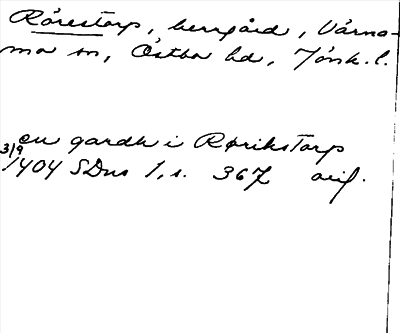 Rörestorp, herrgård, Värna-
mo sn, Östbo hd, Jönk. l.
en gardh i Røriks Torp
3/9 1404 SDns 1, s. 367 orig.